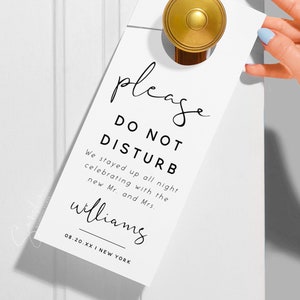 please
DO NOT
DISTURB
We stayed up all night
celebrating with the
new Mr. and Mrs.
williams
08.20.XX | NEW YORK